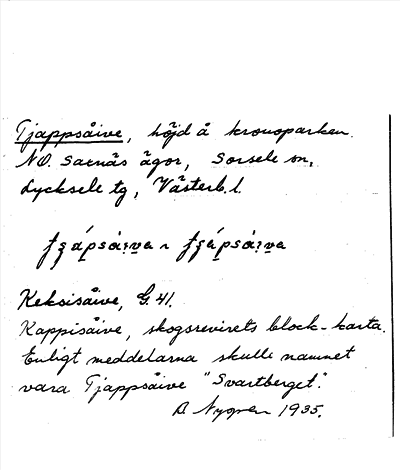 Tjappsåive, höjd å kronoparken.
NO. Saxnäs ägor, Sorsele sn,
Lycksele tg, Västerb. l.
Keksisåive, G. 41.
Kappisåive, skogsrevirets block-karta.
Enligt meddelarna skulle namnet
vara Tjappsåive "Svartberget".
1935.